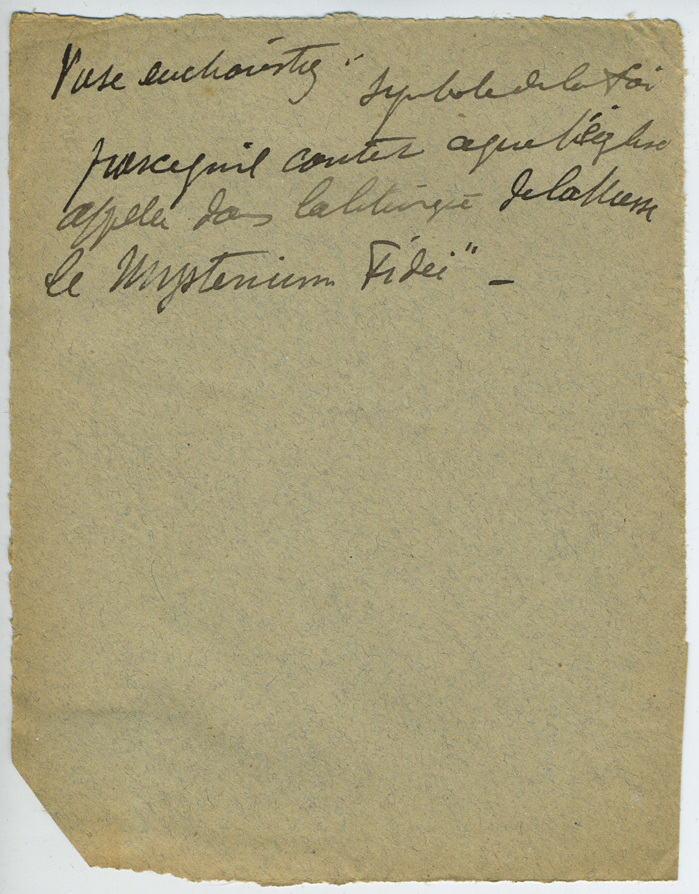 Vase eucharistiq " symbole de la Foi
parcequ'il contet ce que l'église
appelle dans la liturgie de la Messe
le Mysterium Fideï" –